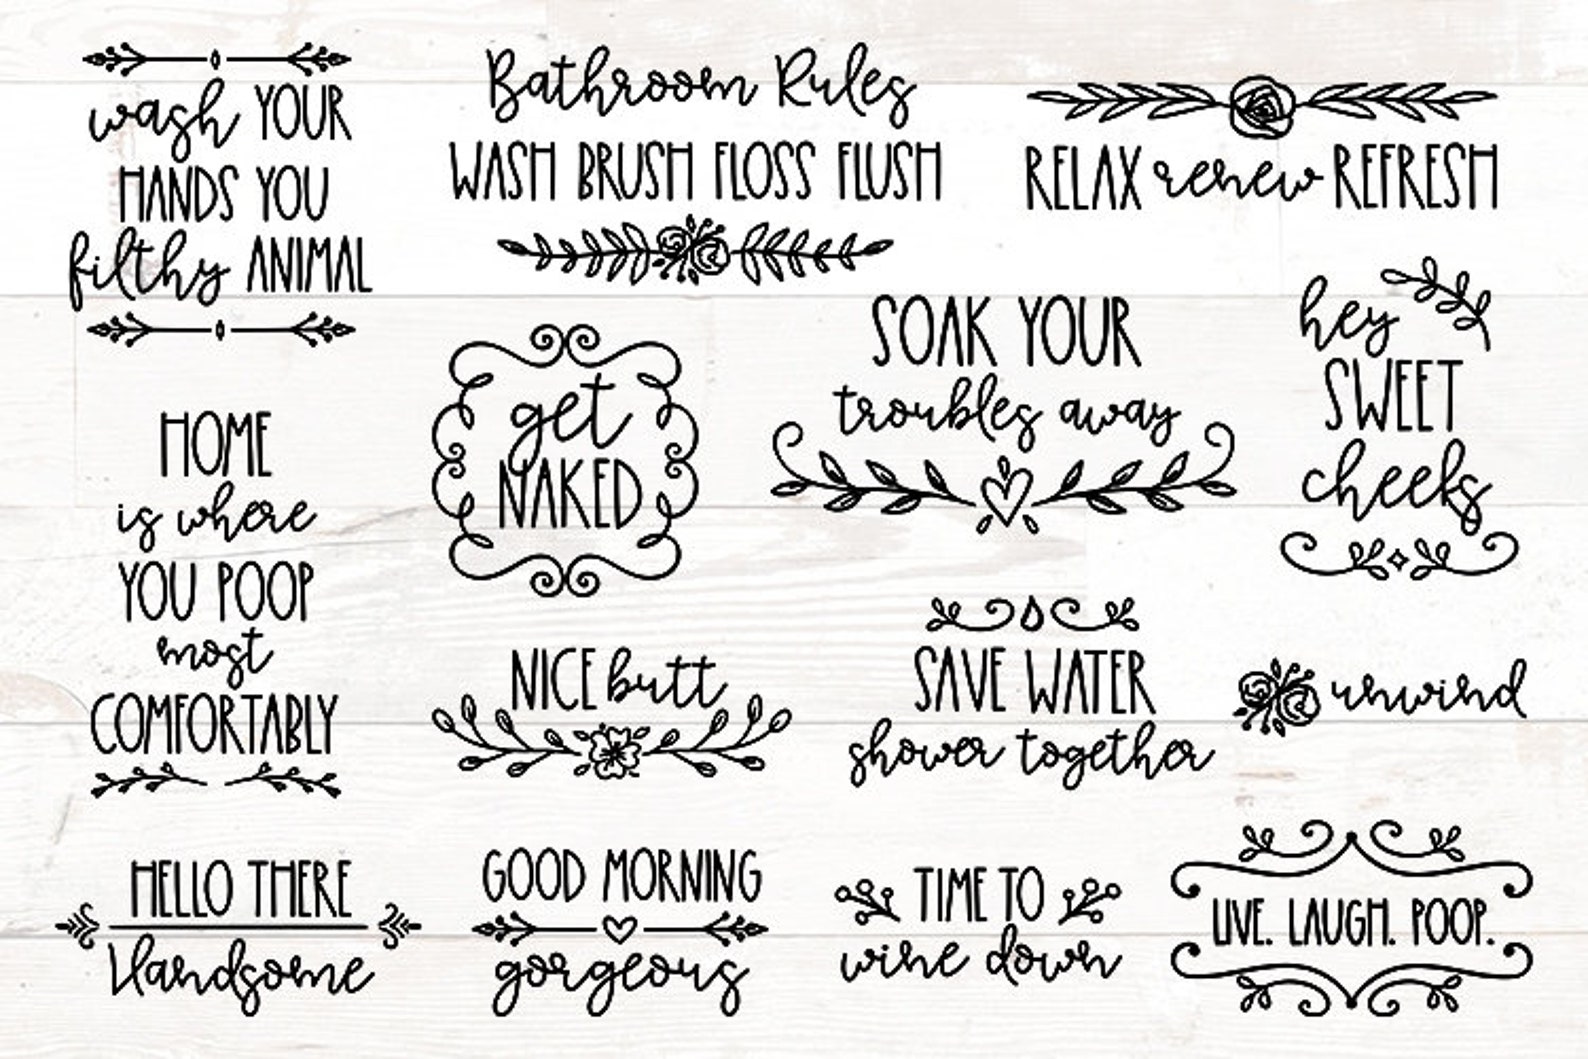 wash YOUR
HANDS YOU
filthy ANIMAL
Bathroom Rules
WASH BRUSH FLOSS FLUSH
RELAX renew REFRESH
HOME
is where
YOU POOP
most
COMFORTABLY
get
NAKED
SOAK YOUR
troubles away
hey
SWEET
cheeks
NICE butt
SAVE WATER
shower together
unwind
HELLO THERE
Handsome
GOOD MORNING
gorgeous
TIME TO
wine down
LIVE. LAUGH. POOP.